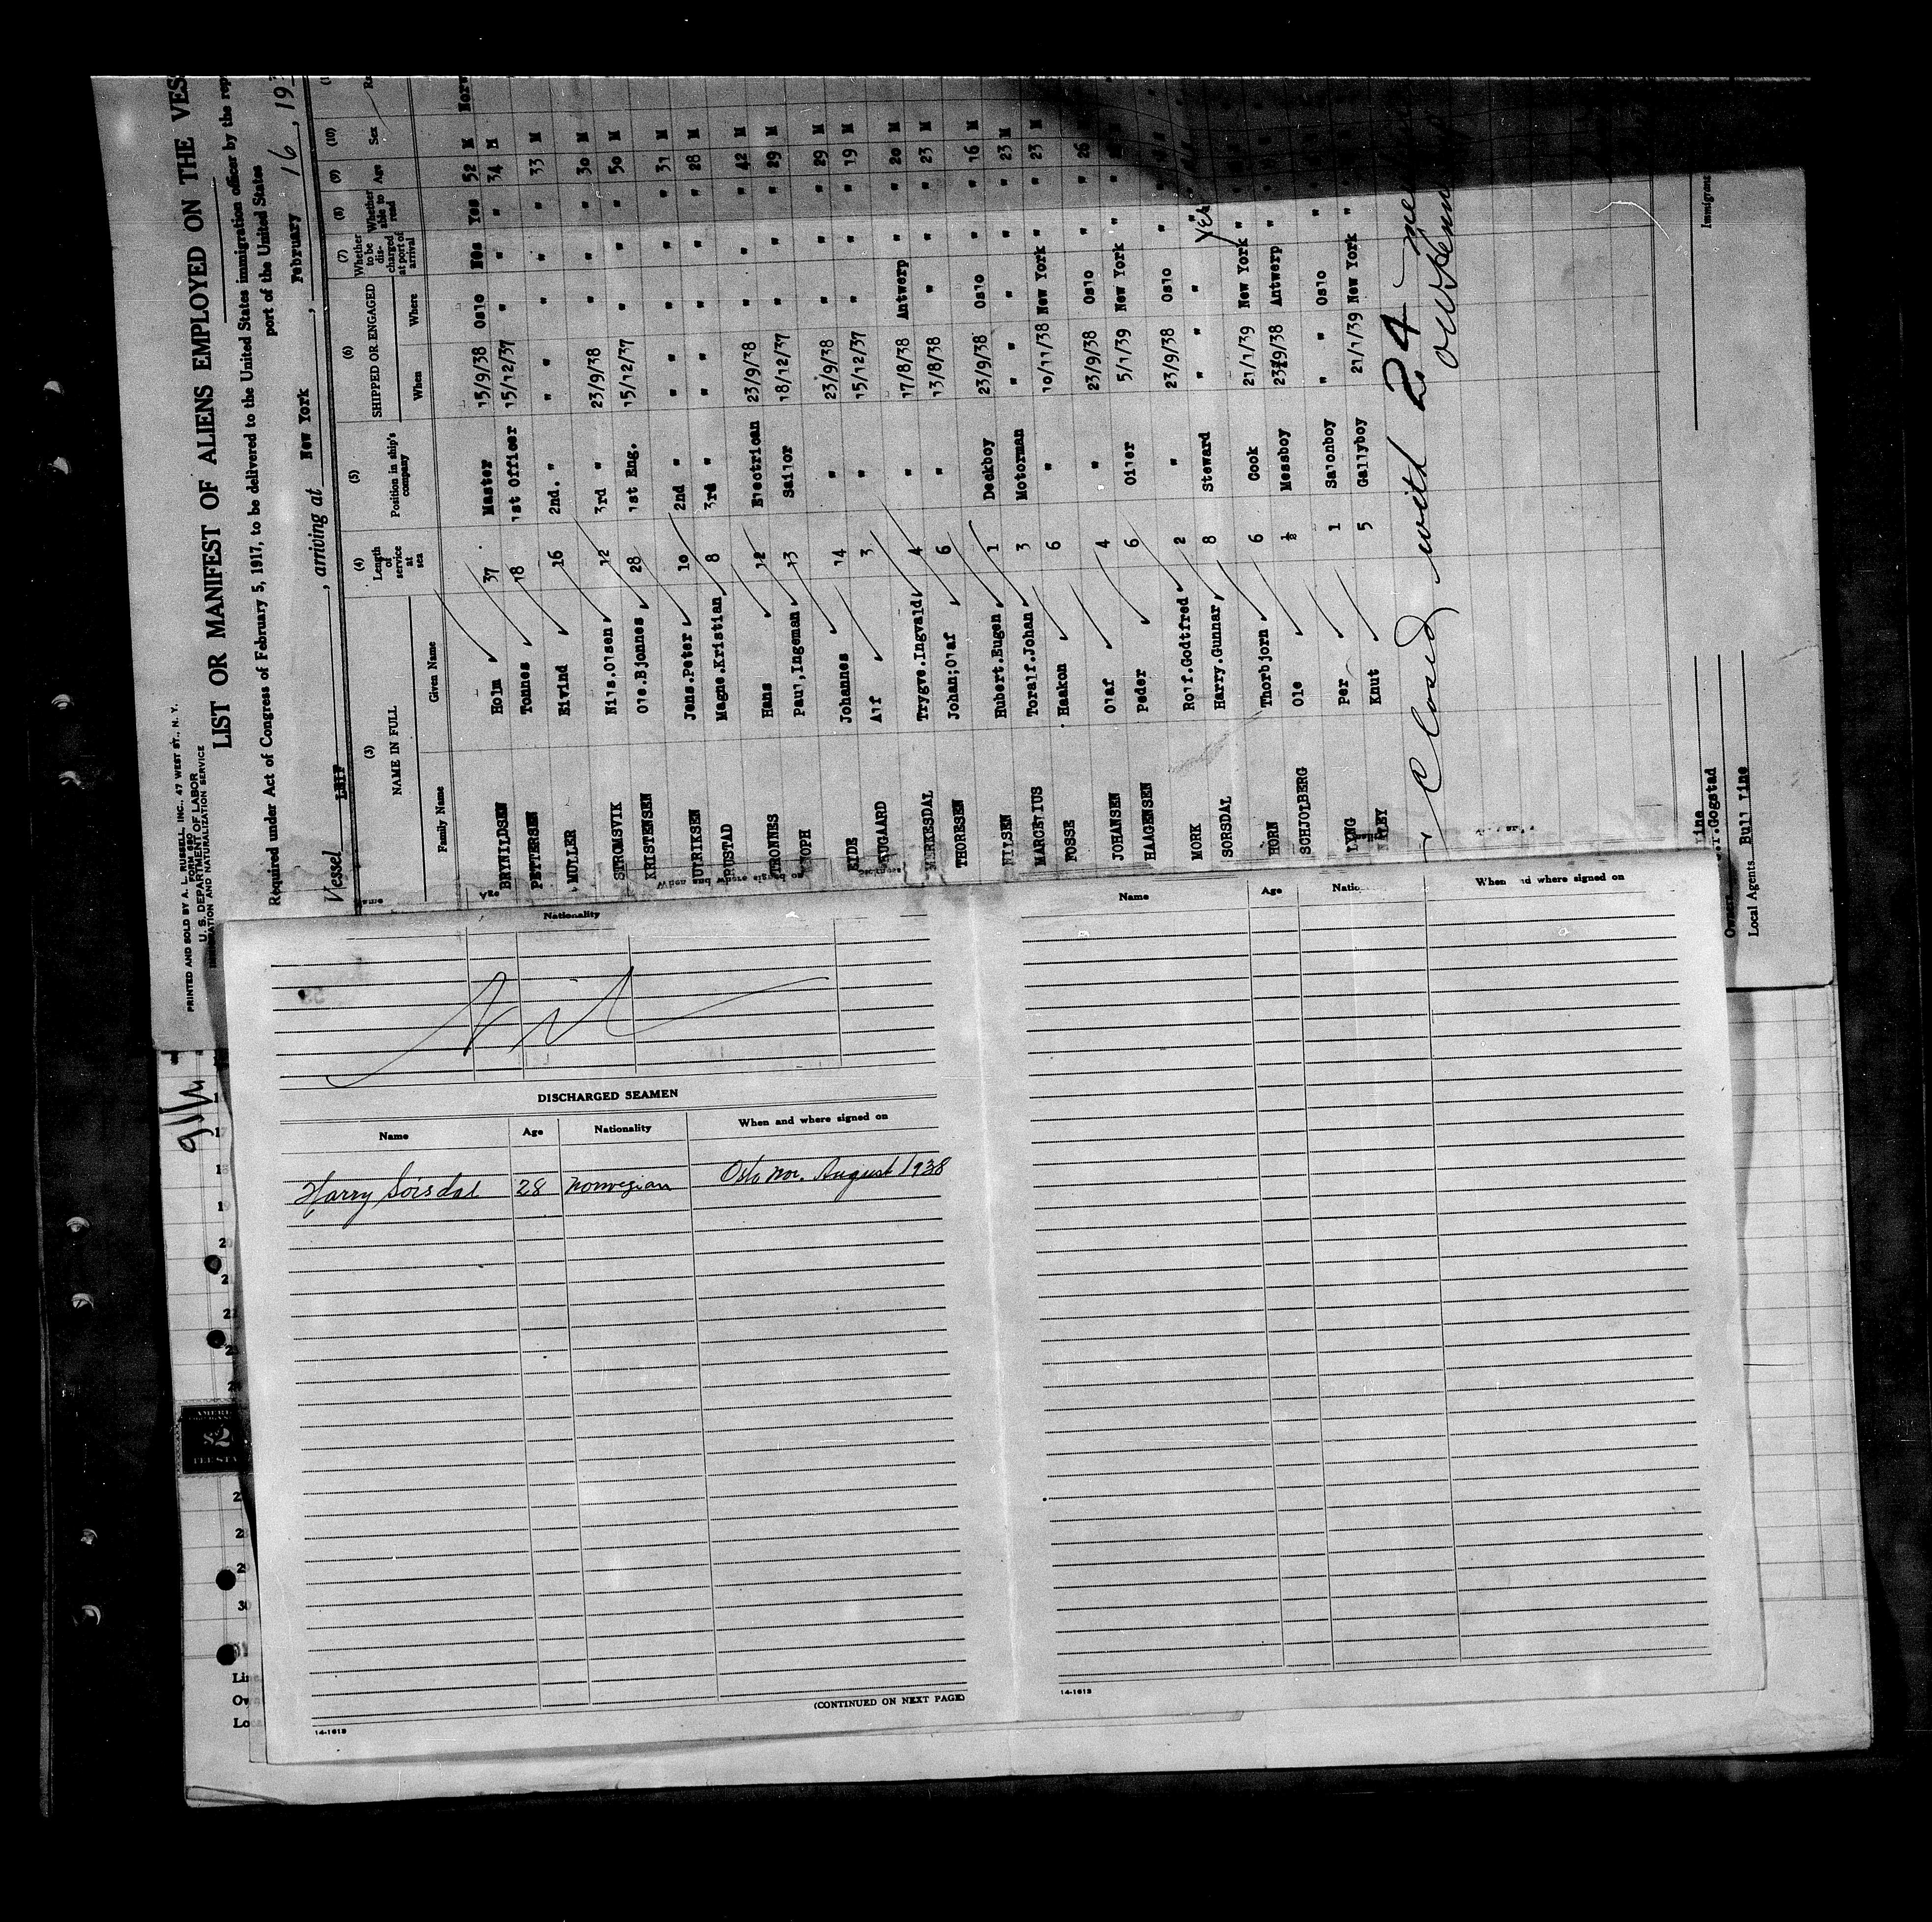 PRINTED AND SOLD BY A. L. RUSSELL, INC., 47 WEST ST., N. Y.
FORM 680
U. S. DEPARTMENT OF LABOR
IMMIGRATION AND NATURALIZATION SERVICE
LIST OR MANIFEST OF ALIENS EMPLOYED ON THE VES
Required under Act of Congress of February 5, 1917, to be delivered to the United States immigration officer by the rep
port of the United States
Vessel LEIF , arriving at New York , February 16 , 19
(3) (4) (5) (6) (7) (8) (9) (10)
NAME IN FULL Length of service at sea Position in ship's company SHIPPED OR ENGAGED Whether to be discharged at port of arrival Whether able to read Age Sex
Family Name Given Name When Where
BRYNILDSEN Holm 37 Master 15/9/38 Oslo Yes 52 M Norw
PETTERSEN Tonnes 18 1st Officer 15/12/37 " " " 34 M
MULLER Eivind 16 2nd. " " " " " 33 M
STROMSVIK Nils.Olsen 12 3rd " 23/9/38 " " " 30 M
KRISTENSEN Ole.Bjonnes 28 1st Eng. 15/12/37 " " " 50 M
ULRIKSEN Jens.Peter 10 2nd " " " " " 31 M
RUSTAD Magne.Kristian 8 3rd " " " " " 28 M
TRONNES Hans 12 Electrican 23/9/38 " " " 42 M
KNOPH Paul,Ingeman 13 Sailor 18/12/37 " " " 29 M
EIDE Johannes 14 " 23/9/38 " " " 29 M
AUGAARD Alf 3 " 15/12/37 " " " 19 M
MERKESDAL Trygve.Ingvald 4 " 17/8/38 Antwerp " " 20 M
THORESEN Johan;Olaf 6 " 13/8/38 " " " 23 M
NILSEN Hubert.Eugen 1 Deckboy 23/9/38 Oslo " " 16 M
MARCELIUS Toralf.Johan 3 Motorman " " " " 23 M
FOSSE Haakon 6 " 10/11/38 New York " " 23 M
JOHANSEN Olaf 4 " 23/9/38 Oslo " " 26
HAAGENSEN Peder 6 Oiler 5/1/39 New York "
MORK Rolf.Godtfred 2 " 23/9/38 Oslo "
SORSDAL Harry.Gunnar 8 Steward " " Yes "
HORN Thorbjorn 6 Cook 21/1/39 New York "
SCHJOLBERG Ole ½ Messboy 23/9/38 Antwerp "
LYNG Per 1 Salonboy " Oslo "
Knut 5 Gallyboy 21/1/39 New York "
Closed with 24
Immigrant
Gogstad
Owners
Local Agents Bull Line
Age
Nationality
DISCHARGED SEAMEN
Name Age Nationality When and where signed on
Harry Sorsdal 28 Norwegian Oslo Nor. August 1938
(CONTINUED ON NEXT PAGE)
14-1613
Name Age Natio When and where signed on
14-1613
17
2
30